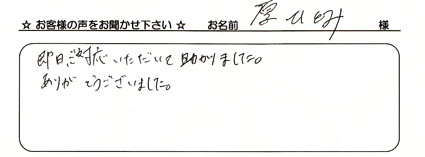 ☆ お客様の声をお聞かせ下さい ☆ お名前 厚ひとみ 様
即日ご対応いただいて助かりました。
ありがとうございました。